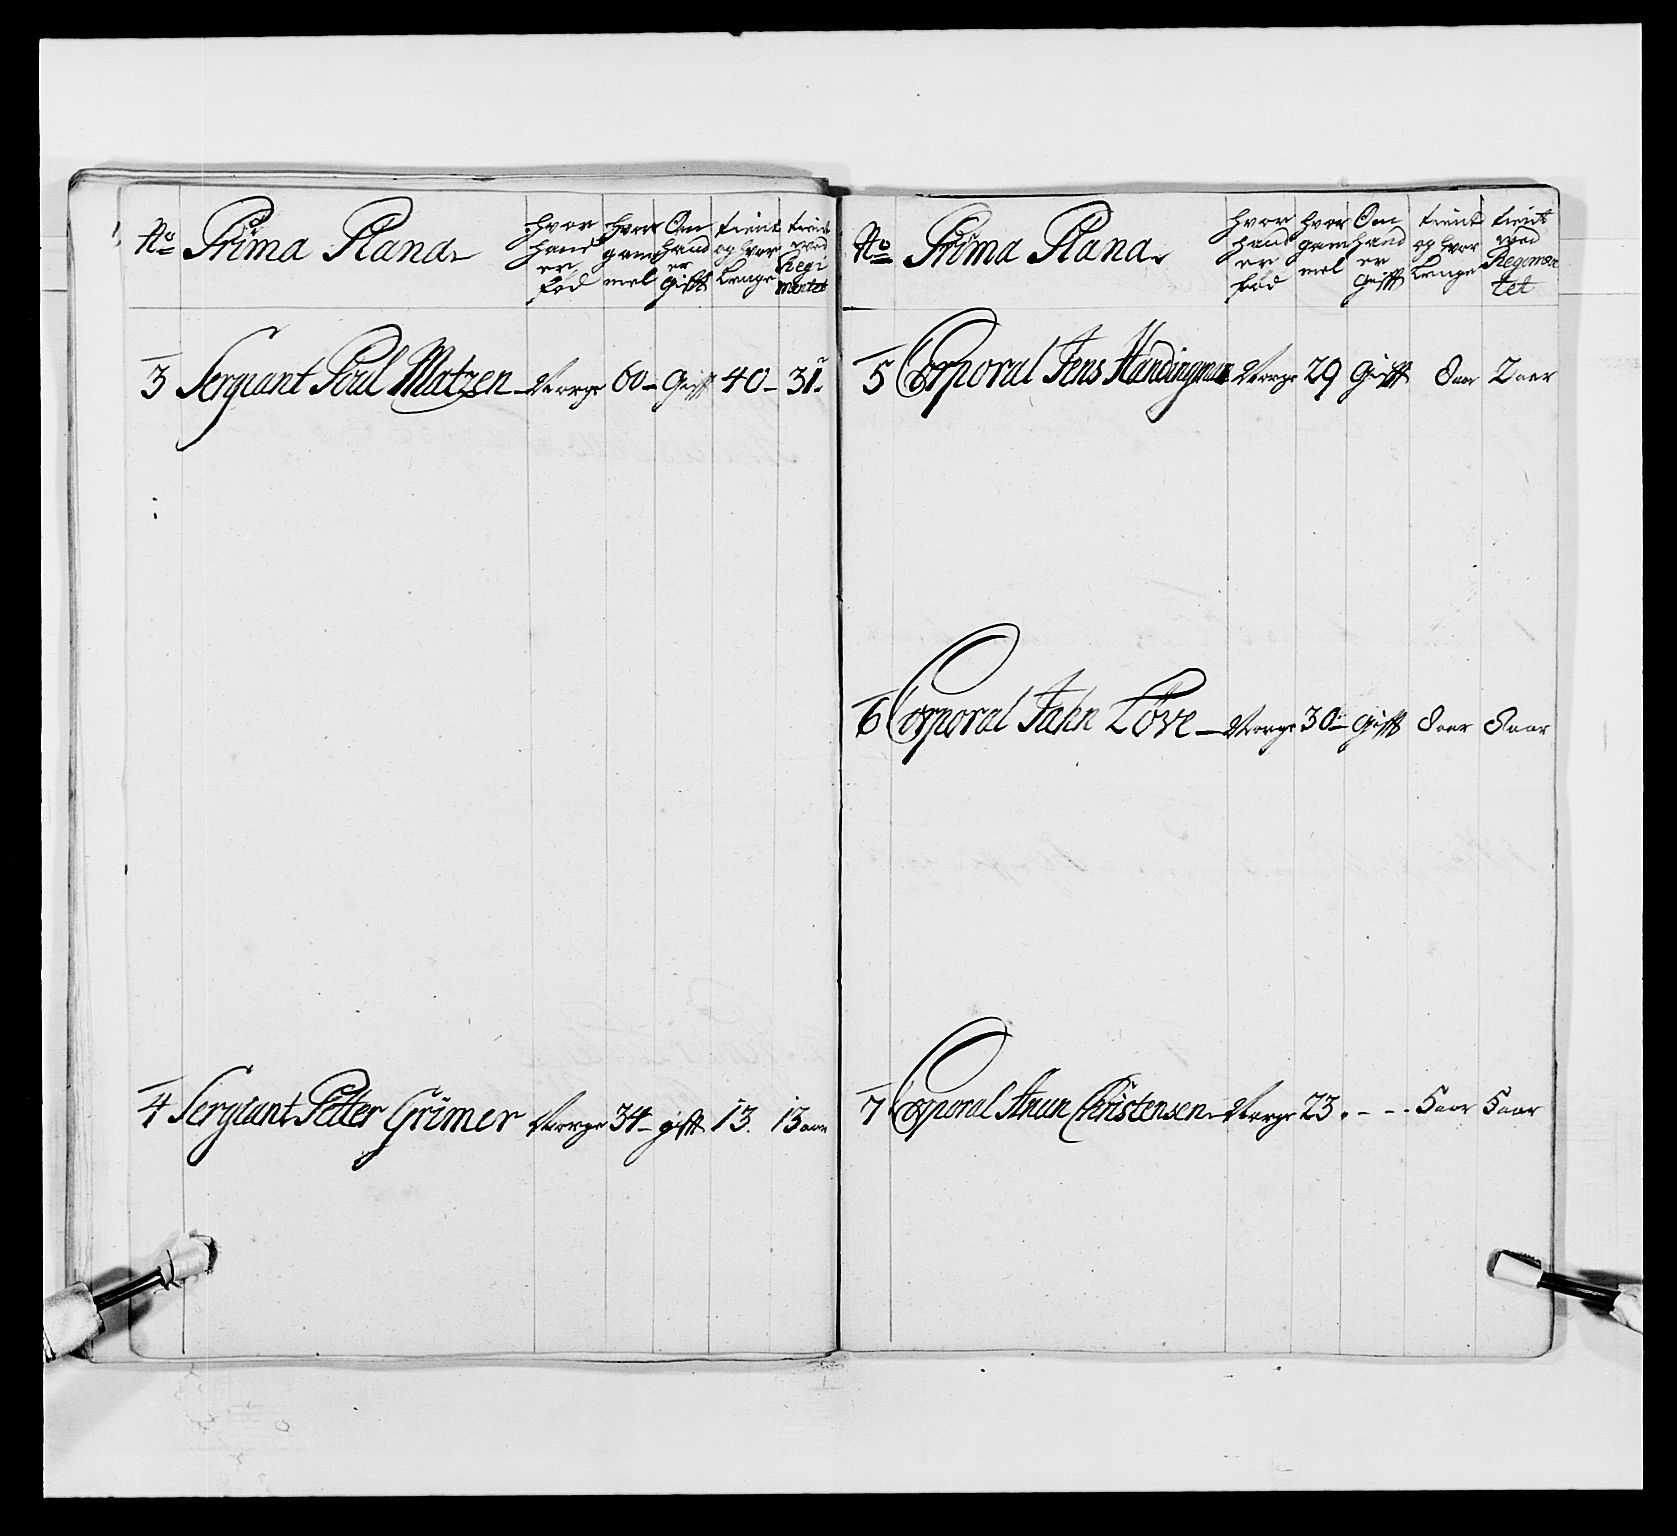 No Prima Plana
hvor hand er fød
hvor gammel
Om hand er gifft
tient og hvor lenge
tient ved Regimentet
3 Sergiant Poul Matzen - Norge 60 - gifft 40 - 31
4 Sergiant Petter Grimer Norge 34 - gifft 13. 13 aar
No Prima Plana
hvor hand er fød
hvor gammel
Om hand er gifft
tient og hvor lenge
tient ved Regementet
5 Corporal Jens Handingman Norge 29 gifft 8 aar 2 aar
6 Corporal Jahn Løve - Norge 30 - gifft 8 aar 8 aar
7 Corporal Christensen - Norge 23. - - - 5 aar 5 aar